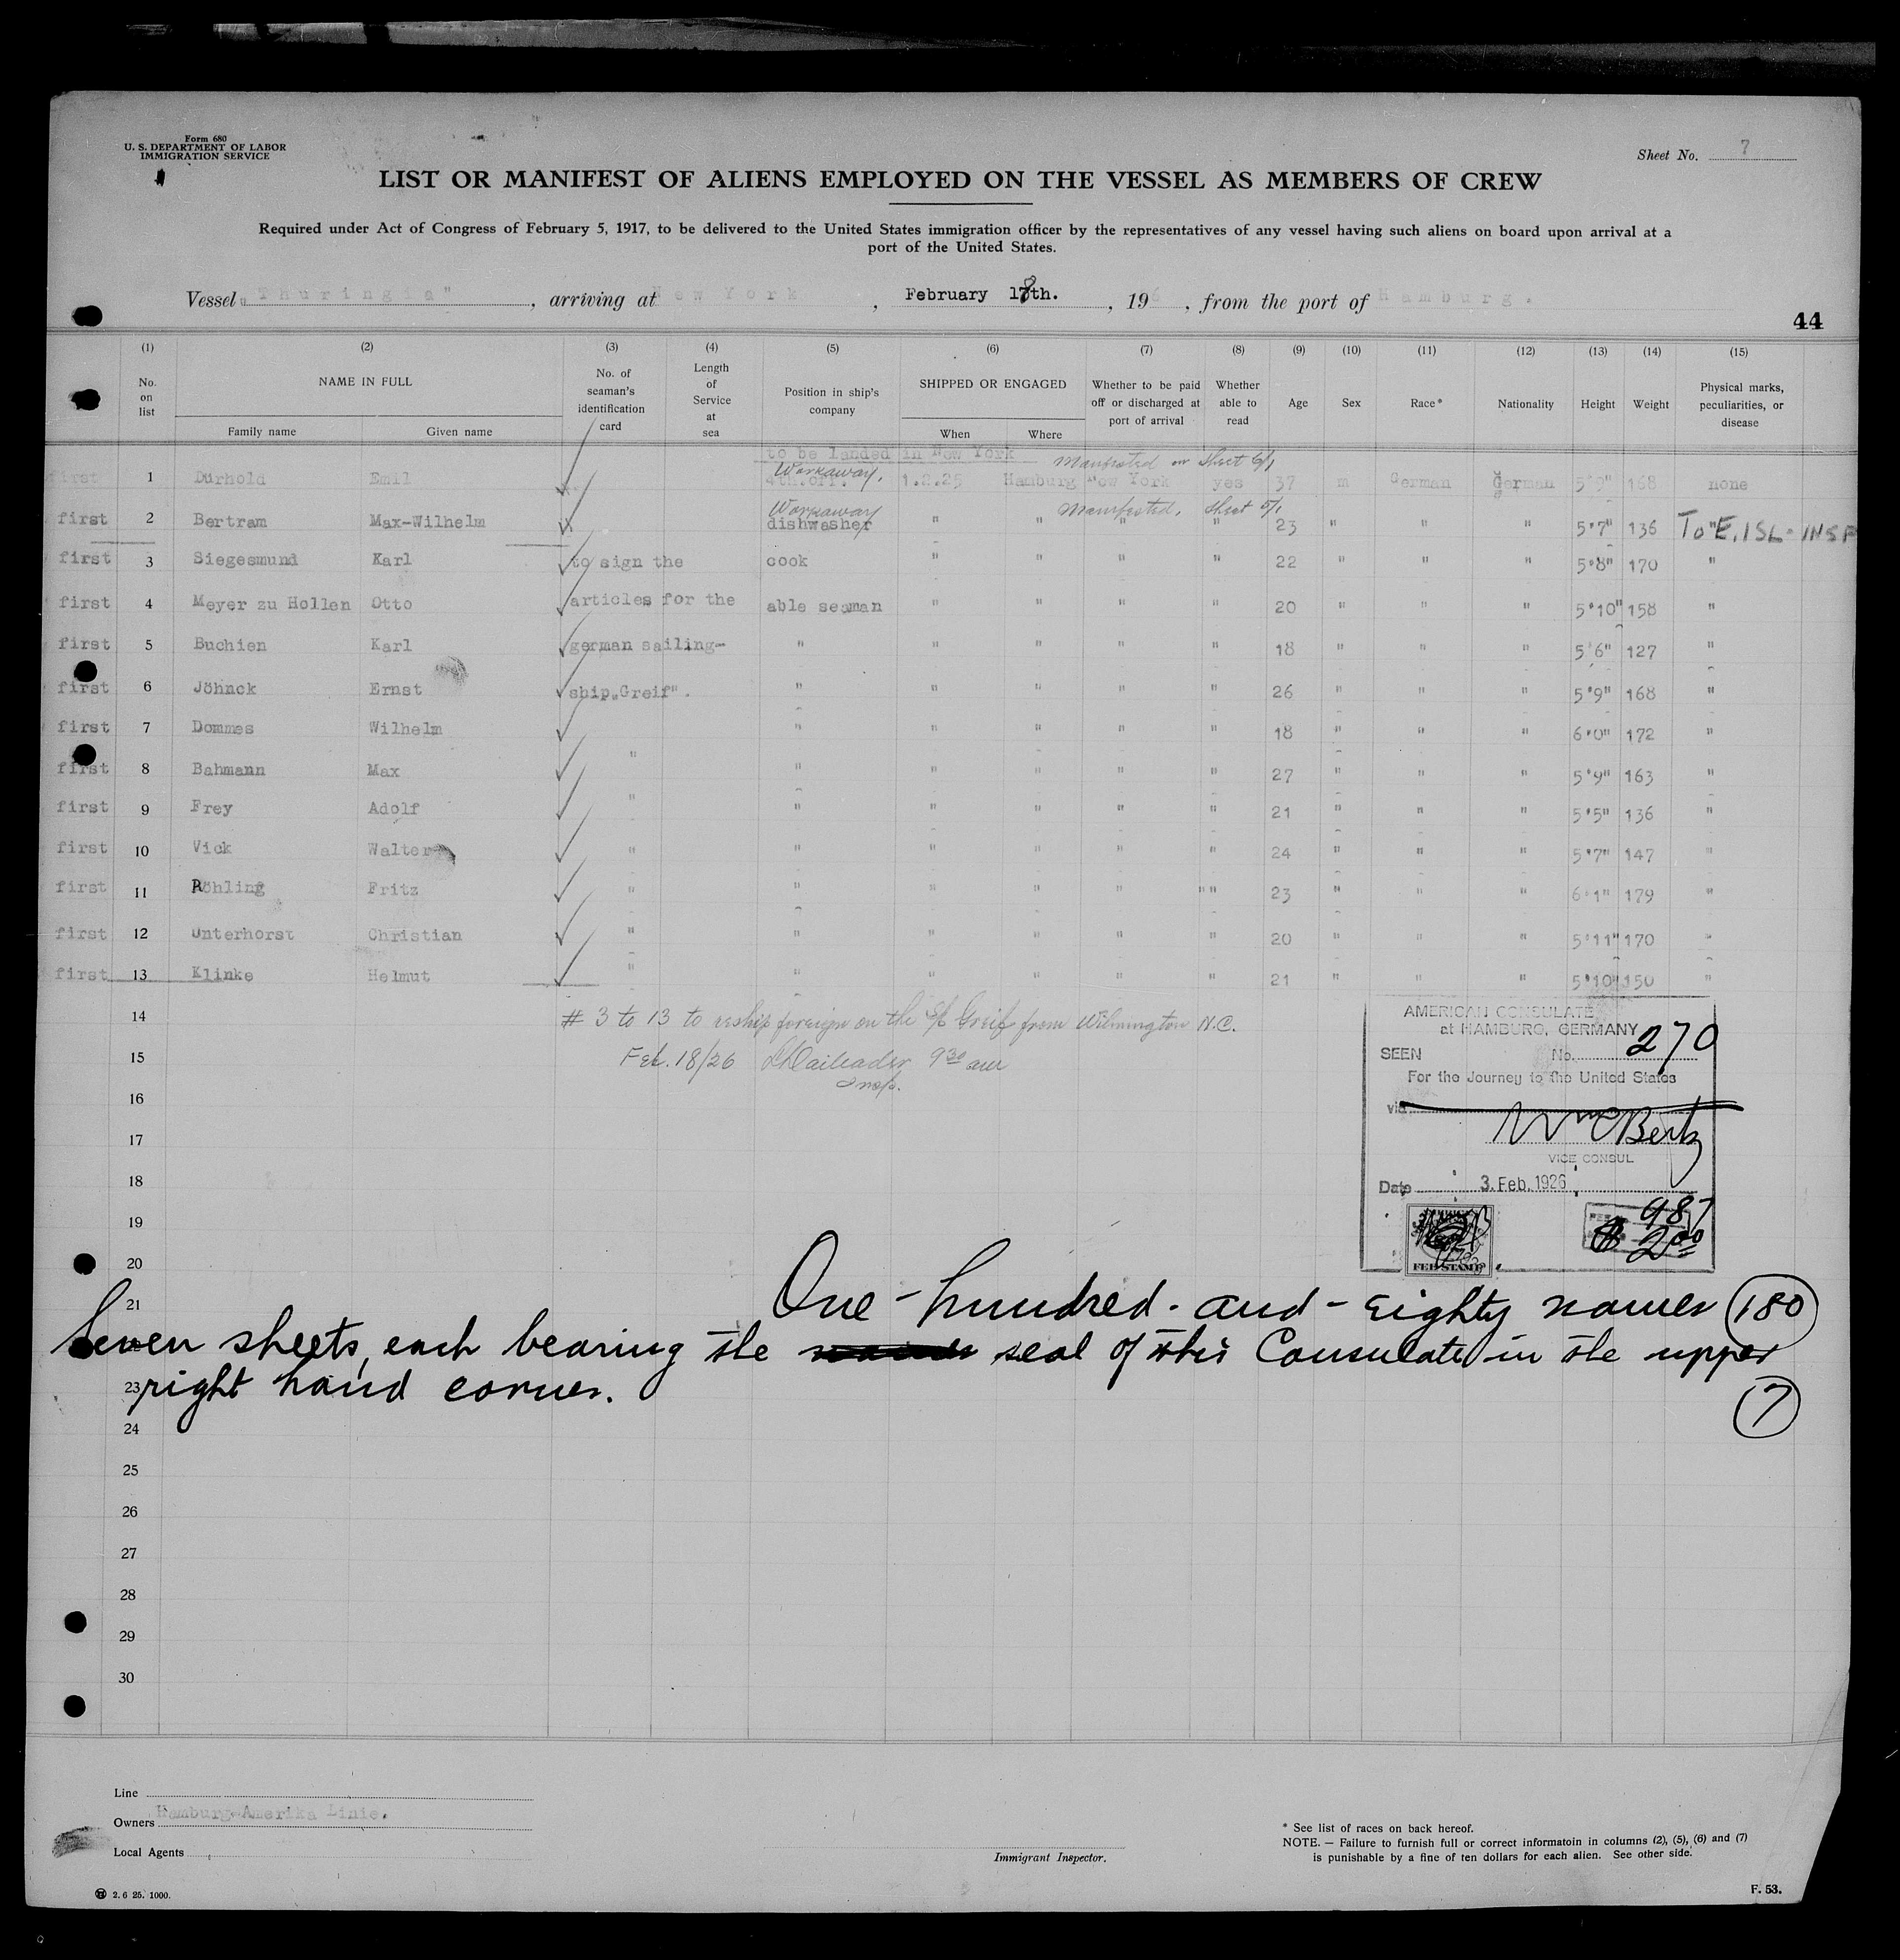 Form 680
U. S. DEPARTMENT OF LABOR
IMMIGRATION SERVICE
Sheet No. 7
LIST OR MANIFEST OF ALIENS EMPLOYED ON THE VESSEL AS MEMBERS OF CREW
Required under Act of Congress of February 5, 1917, to be delivered to the United States immigration officer by the representatives of any vessel having such aliens on board upon arrival at a
port of the United States.
Vessel "Thuringia", arriving at New York, February 18th., 1926, from the port of Hamburg.
44
(1) (2) (3) (4) (5) (6) (7) (8) (9) (10) (11) (12) (13) (14) (15)
No. on list
NAME IN FULL
Family name Given name
No. of seaman's identification card
Length of Service at sea
Position in ship's company
SHIPPED OR ENGAGED
When Where
Whether to be paid off or discharged at port of arrival
Whether able to read
Age
Sex
Race*
Nationality
Height
Weight
Physical marks, peculiarities, or disease
to be landed in New York
Workaway, Manifested on Sheet 6/1
first 1 Dürhold Emil 4th.off. 1.2.25 Hamburg New York yes 37 m German German 5'9" 168 none
Workaway Manifested, Sheet 5/1
first 2 Bertram Max-Wilhelm dishwasher " " " " 23 " " " 5'7" 136 " To E. ISL- INSP
first 3 Siegesmund Karl to sign the cook " " " " 22 " " " 5'8" 170 "
first 4 Meyer zu Hollen Otto articles for the able seaman " " " " 20 " " " 5'10" 158 "
first 5 Buchien Karl german sailing- " " " " " 18 " " " 5'6" 127 "
first 6 Jöhnck Ernst ship „Greif". " " " " " 26 " " " 5'9" 168 "
first 7 Dommes Wilhelm " " " " " 18 " " " 6'0" 172 "
first 8 Bahmann Max " " " " " " 27 " " " 5'9" 163 "
first 9 Frey Adolf " " " " " " 21 " " " 5'5" 136 "
first 10 Vick Walter " " " " " " 24 " " " 5'7" 147 "
first 11 Röhling Fritz " " " " " "" 23 " " " 6'1" 179 "
first 12 Unterhorst Christian " " " " " " 20 " " " 5'11" 170 "
first 13 Klinke Helmut " " " " " " 21 " " " 5'10" 150 "
14 # 3 to 13 to reship foreign on the S/S Greif from Wilmington N.C.
15 Feb. 18/26 9 30 am
Insp.
16
17
18
19
20
AMERICAN CONSULATE
at HAMBURG, GERMANY
SEEN No. 270
For the Journey to the United States
via
Wm C Bertz
VICE CONSUL
Date 3. Feb. 1926
987
$ 2.00
FEE STAMP
21 One-hundred-and-Eighty names (180)
Seven sheets, each bearing the seal of this Consulate in the upper
23 right hand corner. (7)
24
25
26
27
28
29
30
Line
Owners Hamburg-Amerika Linie.
Local Agents
Immigrant Inspector.
* See list of races on back hereof.
NOTE. — Failure to furnish full or correct informatoin in columns (2), (5), (6) and (7)
is punishable by a fine of ten dollars for each alien. See other side.
2. 6 25. 1000.
F. 53.